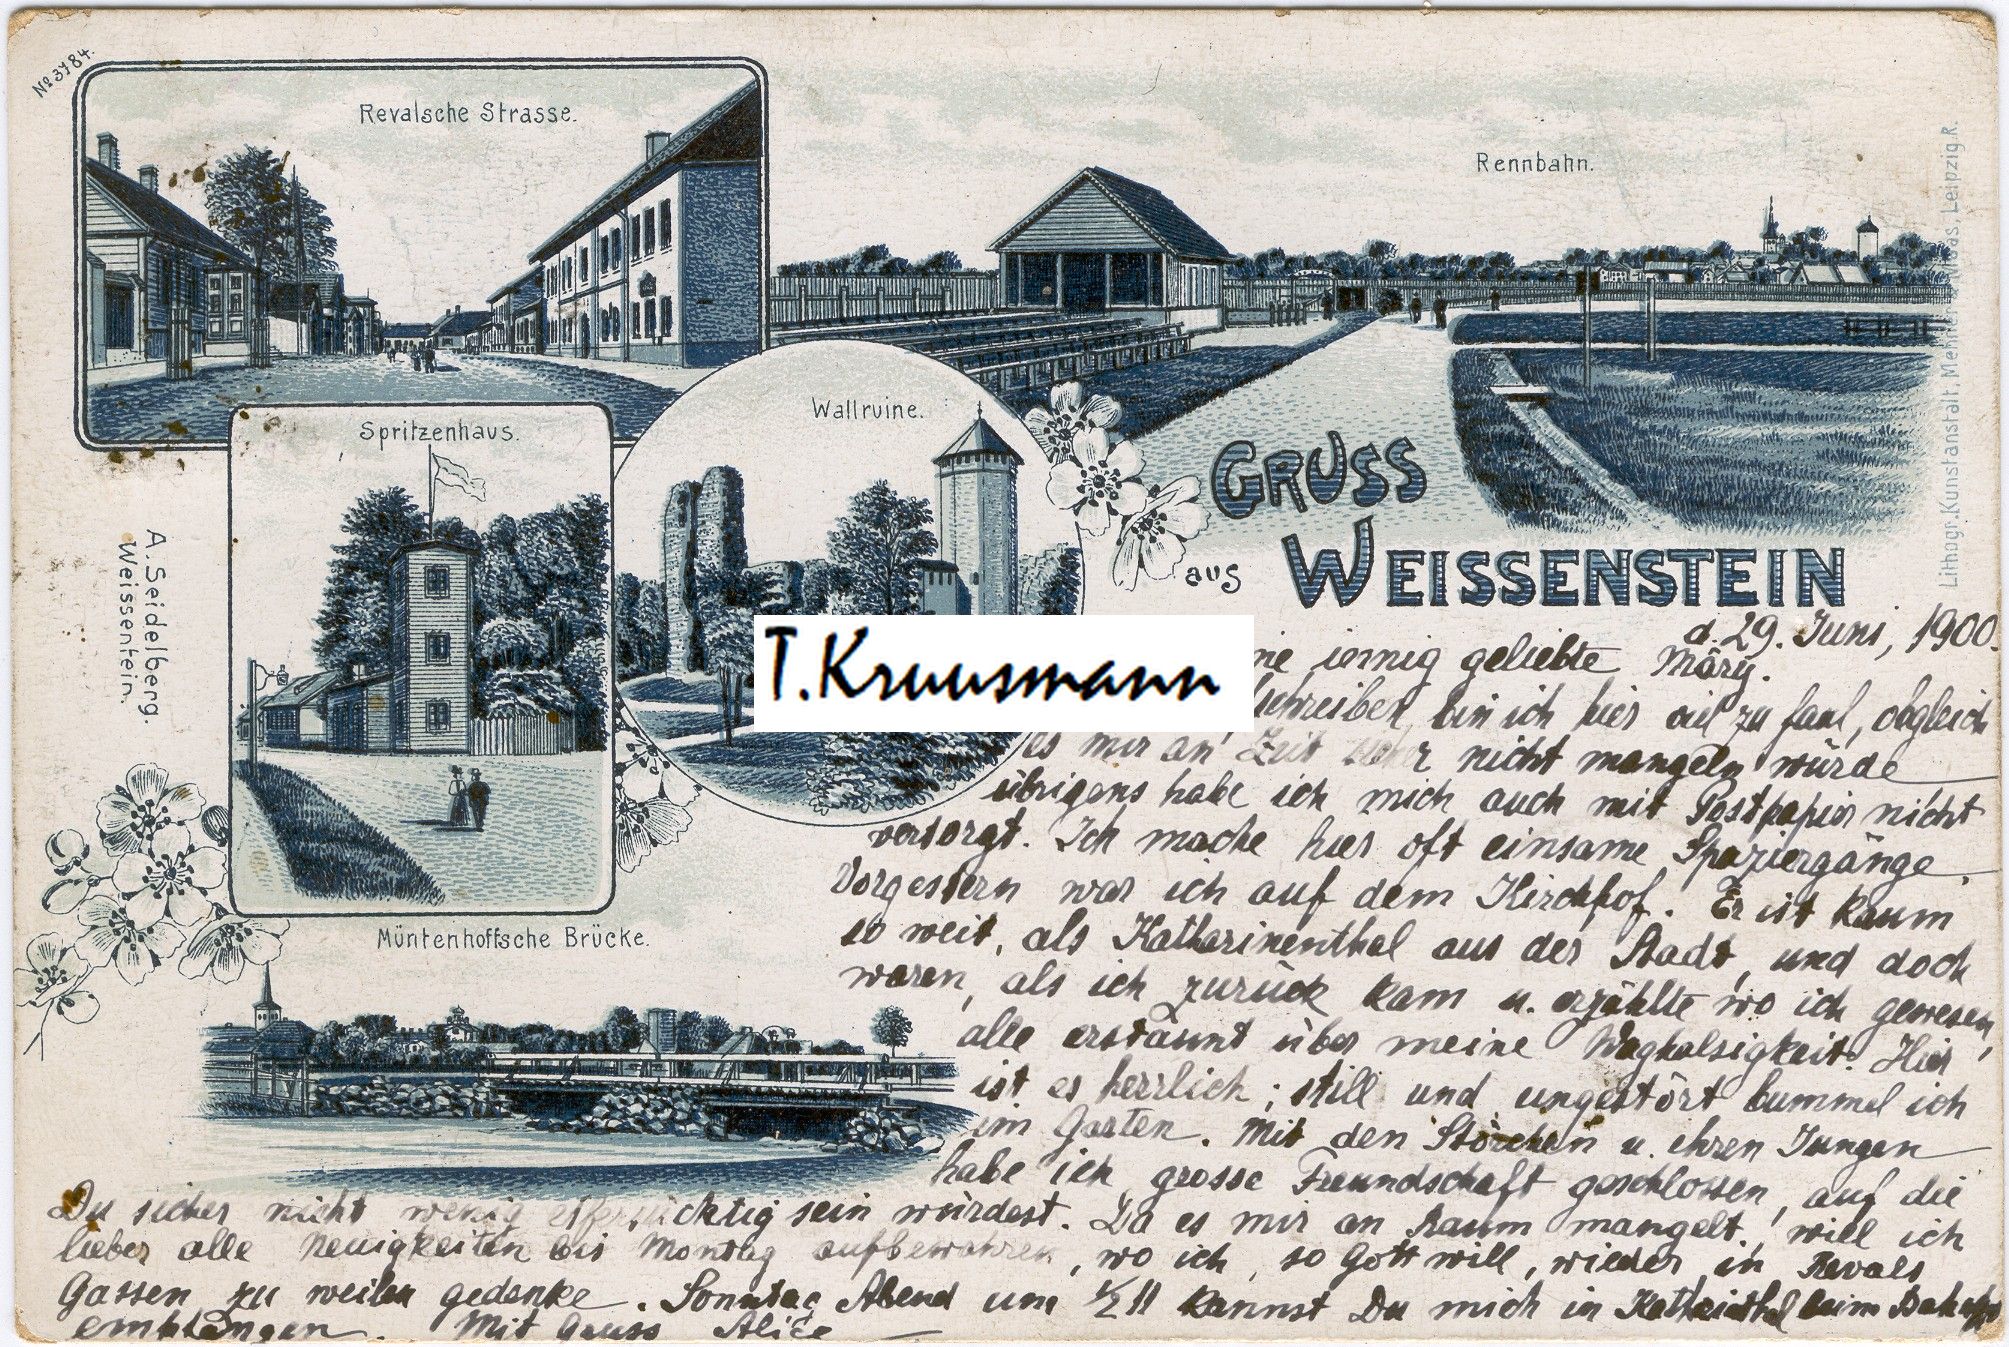 No 3784.
Revalsche Strasse.
Rennbahn.
Spritzenhaus.
Wallruine.
Müntenhoffsche Brücke.
GRUSS
aus
WEISSENSTEIN
A. Seidelberg.
Weissentein.
Lithogr. Kunstanstalt. Leipzig R.
T. Kruusmann
d. 29. Juni, 1900.
innig geliebte Märy.
schreiben bin ich hier viel zu faul, obgleich
es mir an Zeit nicht mangeln würde
übrigens habe ich mich auch mit Postpapier nicht
versorgt. Ich mache hier oft einsame Spaziergänge.
Vorgestern war ich auf dem Kirchhof. Er ist kaum
so weit, als Katharinenthal aus der Stadt, und doch
waren, als ich zurück kam u. erzählte wo ich gewesen,
alle erstaunt über meine Waghalsigkeit. Hier
ist es herrlich; still und ungestört bummel ich
im Garten. Mit den Störchen u. ihren Jungen
habe ich grosse Freundschaft geschlossen, auf die
Du sicher nicht wenig eifersücktig sein würdest. Da es mir an Raum mangelt, will ich
lieber alle Neuigkeiten bis Montag aufbewahren, wo ich, so Gott will, wieder in Revals
Gassen zu weilen gedenke. Sonntag Abend um ½ 11 kannst Du mich in beim
empfangen. Mit Gruss Alice